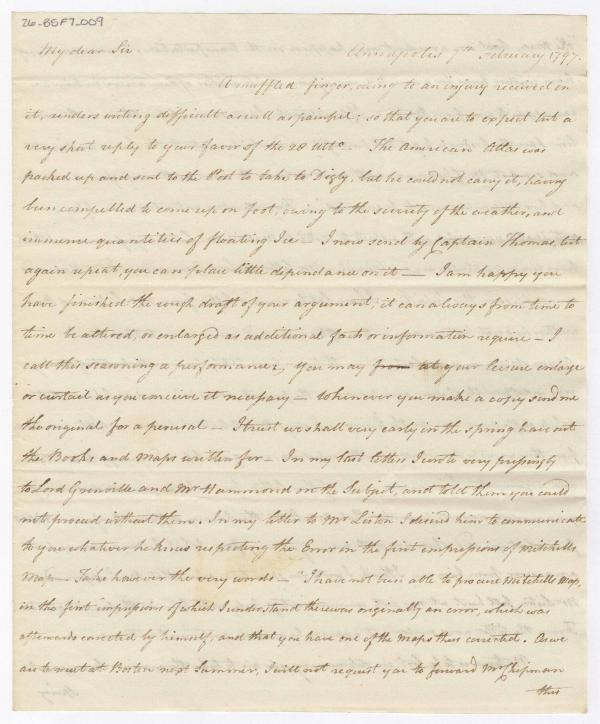 26-BSF7-009
My dear Sir. Annapolis 9th February 1797.
A muffled finger, owing to an injury received in
it, renders writing difficult as well as painful; so that you are to expect but a
very short reply to your favor of the 28 Ulto. The American Atlas was
packed up and sent to the Post to take to Digby, but he could not carry it, having
been compelled to come up on foot, owing to the severity of the weather, and
immense quantities of floating Ice — I now send by Captain Thomas, but
again repeat, you can place little dependance on it — I am happy you
have finished the rough draft of your argument; it can always from time to
time be altered, or enlarged as additional facts or information require — I
call this seasoning a performance, you may from at your leisure enlarge
or curtail as you conceive it necessary — Whenever you make a copy send me
the original for a perusal — I trust we shall very early in the spring have out
the Books and Maps written for — In my last letters I wrote very pressingly
to Lord Grenville and Mr Hammond on the Subject, and told them you could
not proceed without them. In my letter to Mr Liston I desired him to communicate
to you whatever he knew respecting the Error in the first impressions of Mitchells
Map — Take however the very words — "I have not been able to procure Mitchells Map,
in the first impressions of which I understand there was originally an error, which was
afterwards corrected by himself, and that you have one of the Maps thus corrected. As we
are to meet at Boston next Summer, I will not request you to forward Mr Chipman
this